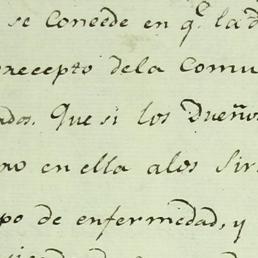 se Concede en q.e la
precepto dela Comu
ados. Que si los Dueños
no en ella alos Sir
po de enfermedad, y